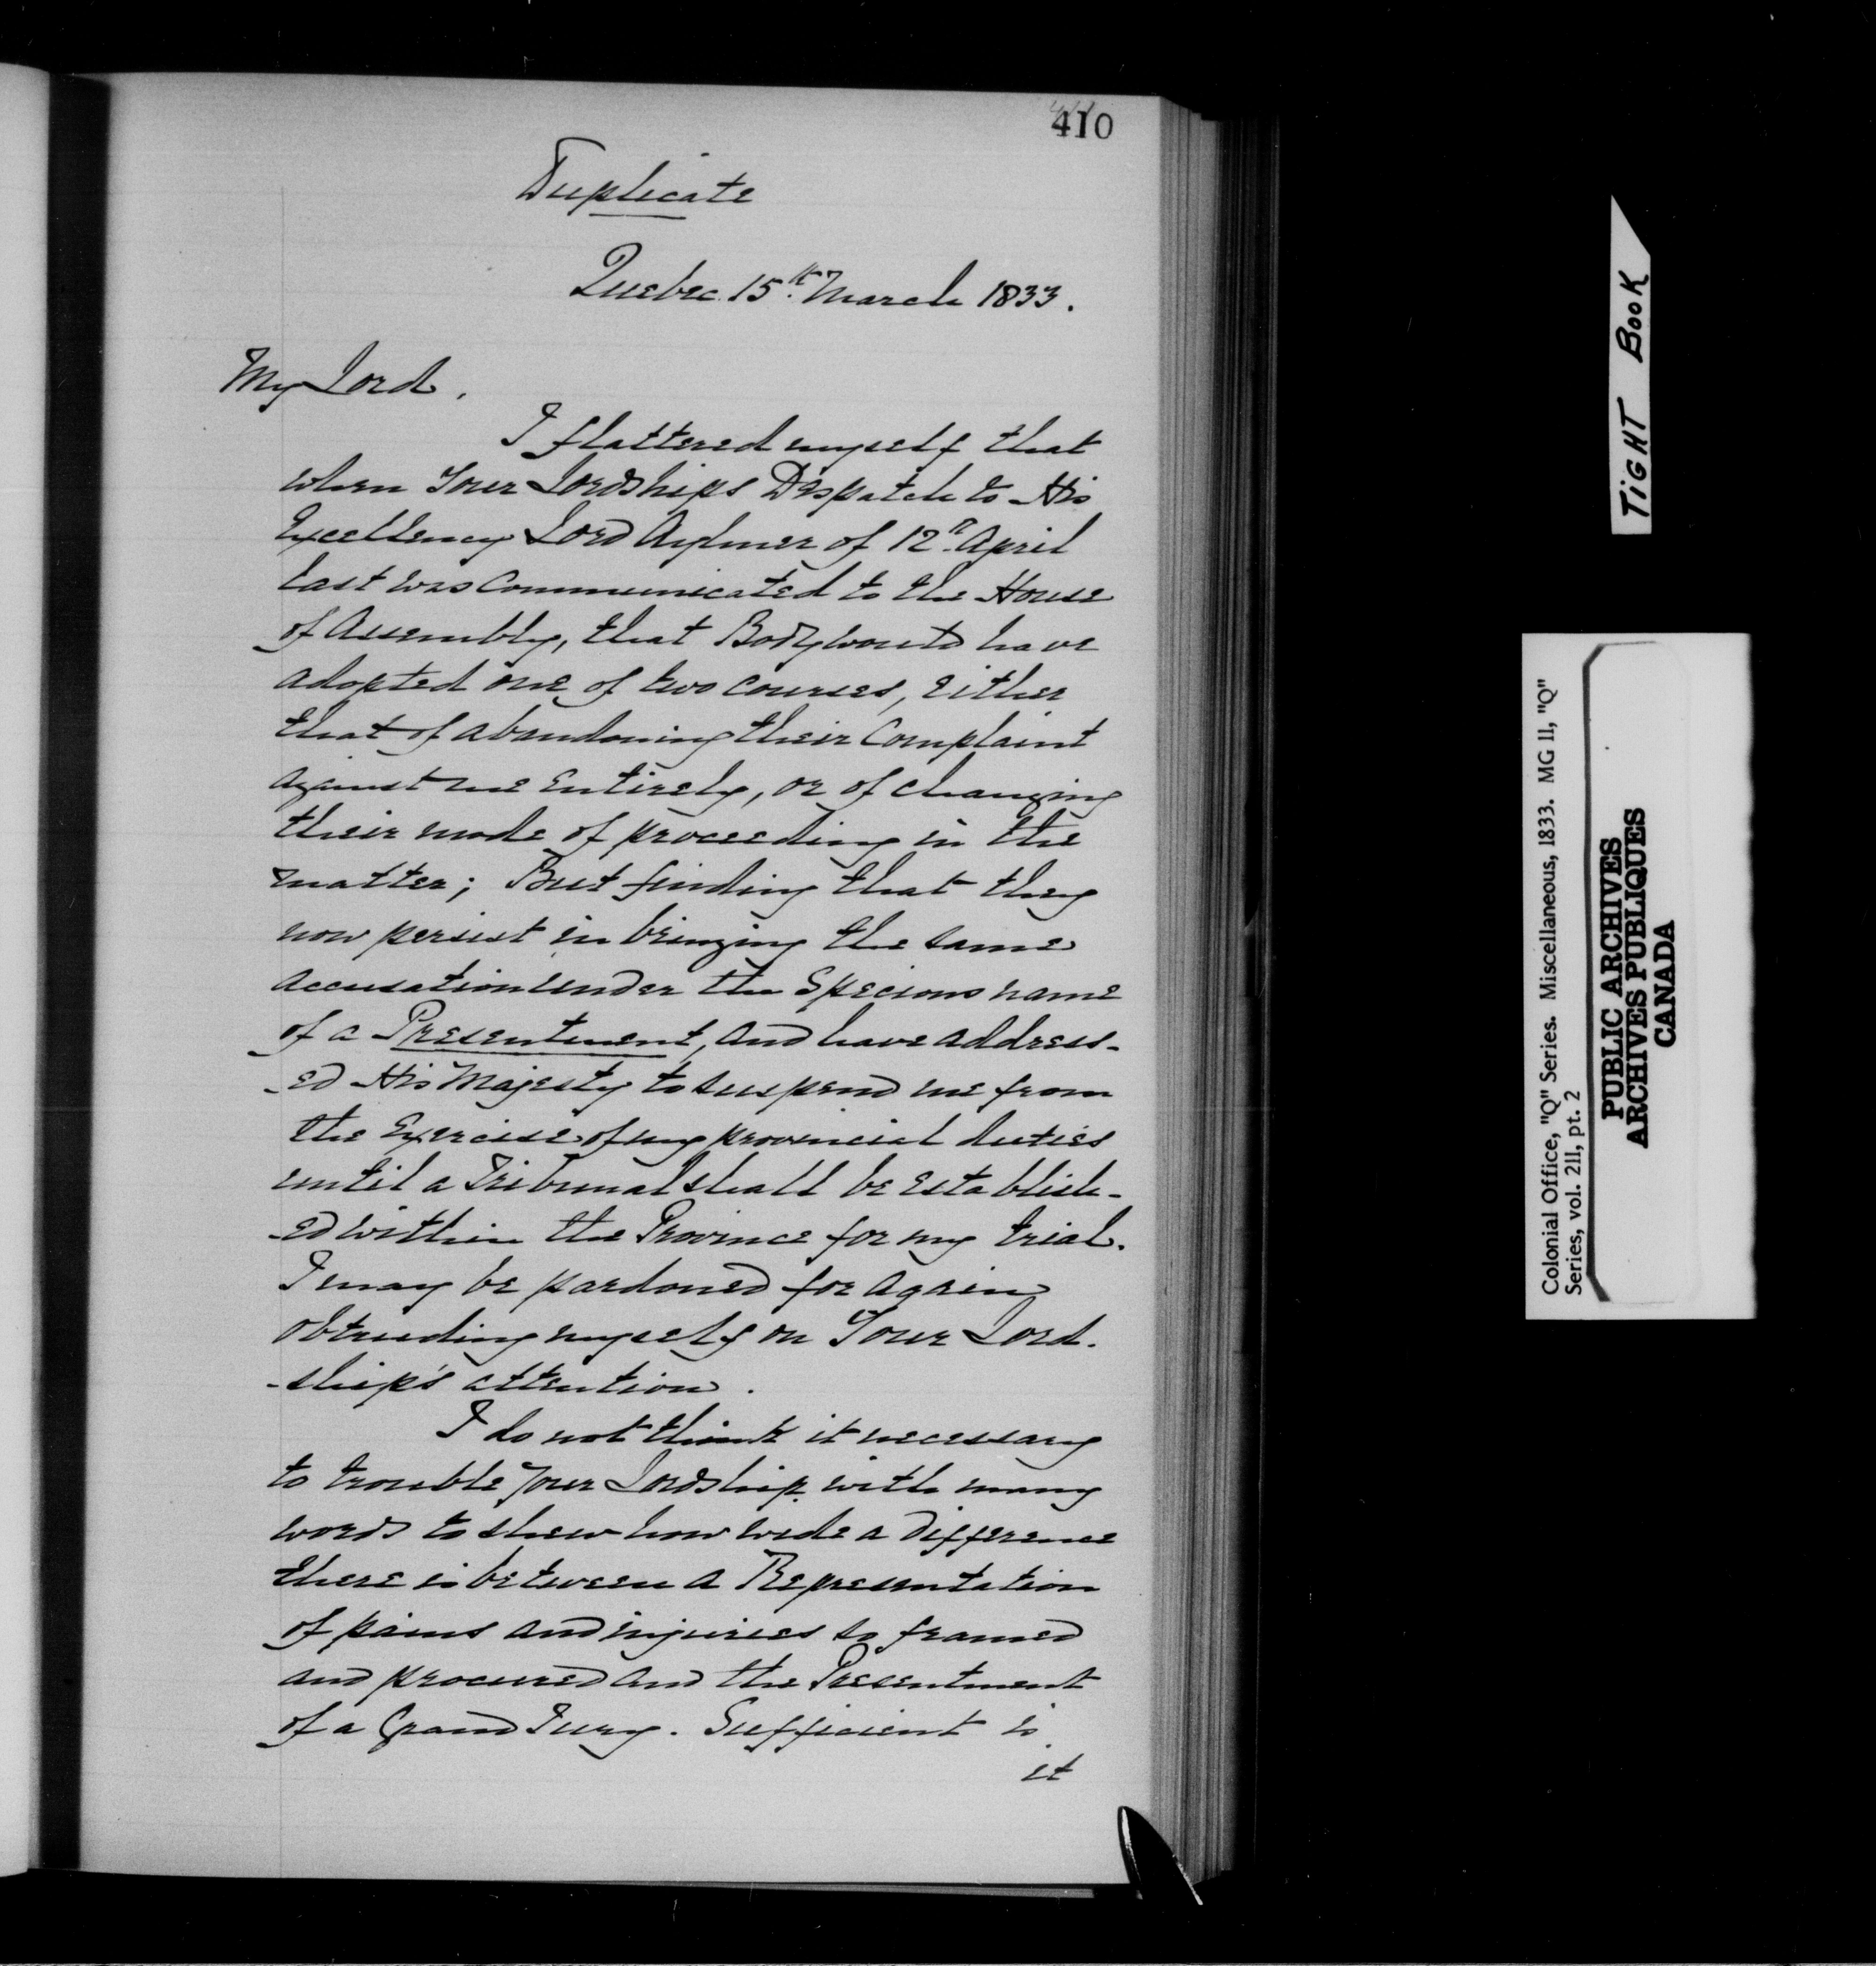 410
Duplicate
Quebec 15th. March 1833.
My Lord.
I flattered myself that
when Your Lordships Despatch to His
Excellency Lord Aylmer of 12th. April
last was Communicated to the House
of Assembly, that Body would have
adopted one of two courses, either
that of abandoning their Complaint
against me entirely, or of changing
their mode of proceeding in the
matter; But finding that they
now persist in bringing the same
accusation under the Specious name
of a Presentment, and have address-
-ed His Majesty to suspend me from
the Exercise of my provincial duties
until a Tribunal shall be establish-
-ed within the Province for my trial.
I may be pardoned for again
obtruding myself on Your Lord-
-ship's attention.
I do not think it necessary
to trouble your Lordship with many
words to shew how wide a difference
there is between a Representation
of pains and injuries so framed
and procured and the Presentment
of a Grand Jury. Sufficient is
it
TIGHT BOOK
Colonial Office, "Q" Series. Miscellaneous, 1833. MG 11, "Q"
Series, vol. 211, pt. 2
PUBLIC ARCHIVES
ARCHIVES PUBLIQUES
CANADA